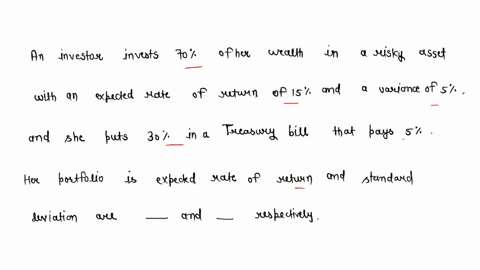 An investor invests 70% of her wealth in a risky asset
with an expected rate of return of 15% and a variance of 5%.
and she puts 30% in a Treasury bill that pays 5%.
Her portfolio is expected rate of return and standard
deviation are __ and __ respectively.